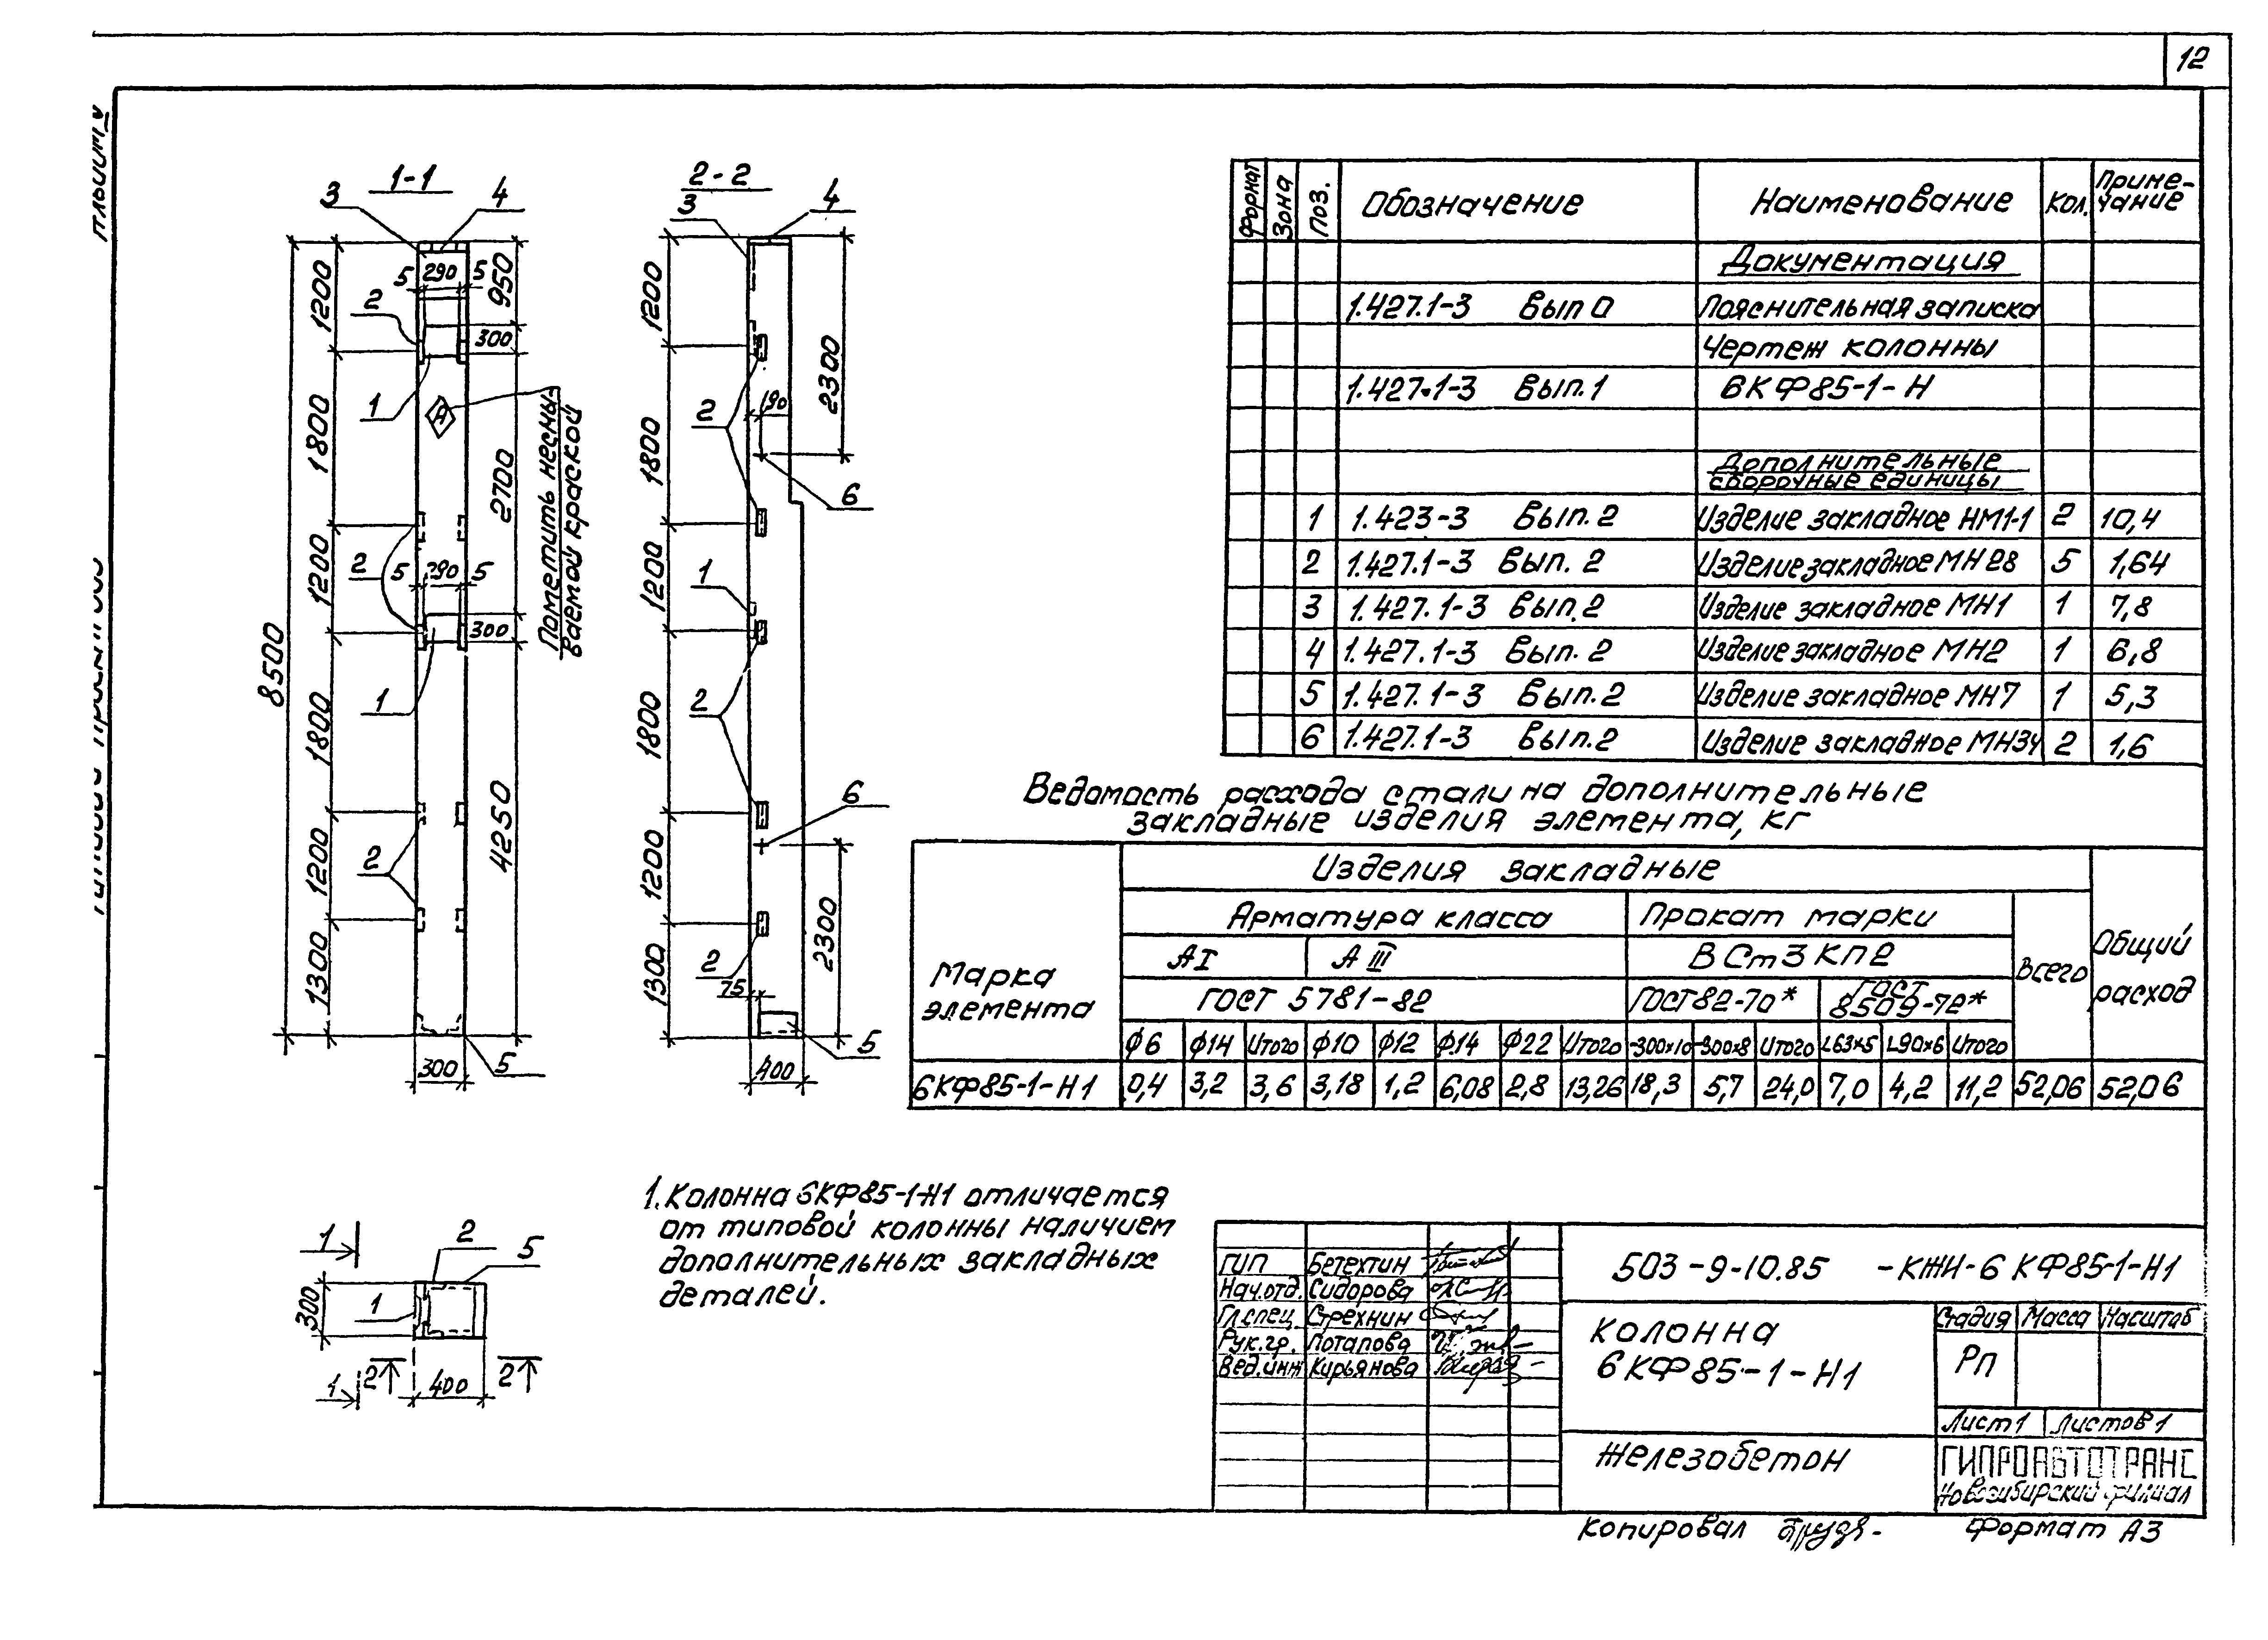 12
1-1
3
4
1200
1800
1200
1800
1200
1300
8500
5 290 5
950
2
300
1
А
Пометить несмы-
ваемой краской
2700
2
5 290 5
300
1
4250
2
300
5
2-2
3
4
1200
1800
1200
1800
1200
1300
2300
190
2
6
1
2
6
2300
2
75
5
400
Формат
Зона
Поз.
Обозначение
Наименование
Кол.
Приме-
чание
Документация
1.427.1-3 Вып 0 Пояснительная записка
Чертеж колонны
1.427.1-3 Вып.1 6КФ85-1-Н
Дополнительные
сборочные единицы
1 1.423-3 Вып.2 Изделие закладное НМ1-1 2 10,4
2 1.427.1-3 Вып. 2 Изделие закладное МН28 5 1,64
3 1.427.1-3 Вып.2 Изделие закладное МН1 1 7,8
4 1.427.1-3 Вып. 2 Изделие закладное МН2 1 6,8
5 1.427.1-3 Вып.2 Изделие закладное МН7 1 5,3
6 1.427.1-3 Вып.2 Изделие закладное МН34 2 1,6
Ведомость расхода стали на дополнительные
закладные изделия элемента, кг
Марка
элемента
Изделия закладные
Арматура класса
Прокат марки
АI
АIII
ВСт3КП2
Всего
Общий
расход
ГОСТ 5781-82
ГОСТ82-70*
ГОСТ
8509-72*
ф6 ф14 Итого ф10 ф12 ф14 ф22 Итого -300х10 -300х8 Итого L63х5 L90х6 Итого
6КФ85-1-Н1 0,4 3,2 3,6 3,18 1,2 6,08 2,8 13,26 18,3 5,7 24,0 7,0 4,2 11,2 52,06 52,06
1. Колонна 6КФ85-1-Н1 отличается
от типовой колонны наличием
дополнительных закладных
деталей.
1
2
5
300
1
2
2
1
400
ГИП Бетехтин
Нач.отд. Сидорова
Гл.спец. Стрехнин
Рук.гр. Потапова
Вед.инж Кирьянова
503-9-10.85 -КЖИ-6КФ85-1-Н1
Колонна
6КФ85-1-Н1
Стадия Масса Масштаб
РП
Лист 1 Листов 1
Железобетон
ГИПРОАВТОТРАНС
Новосибирский филиал
Копировал
Формат А3